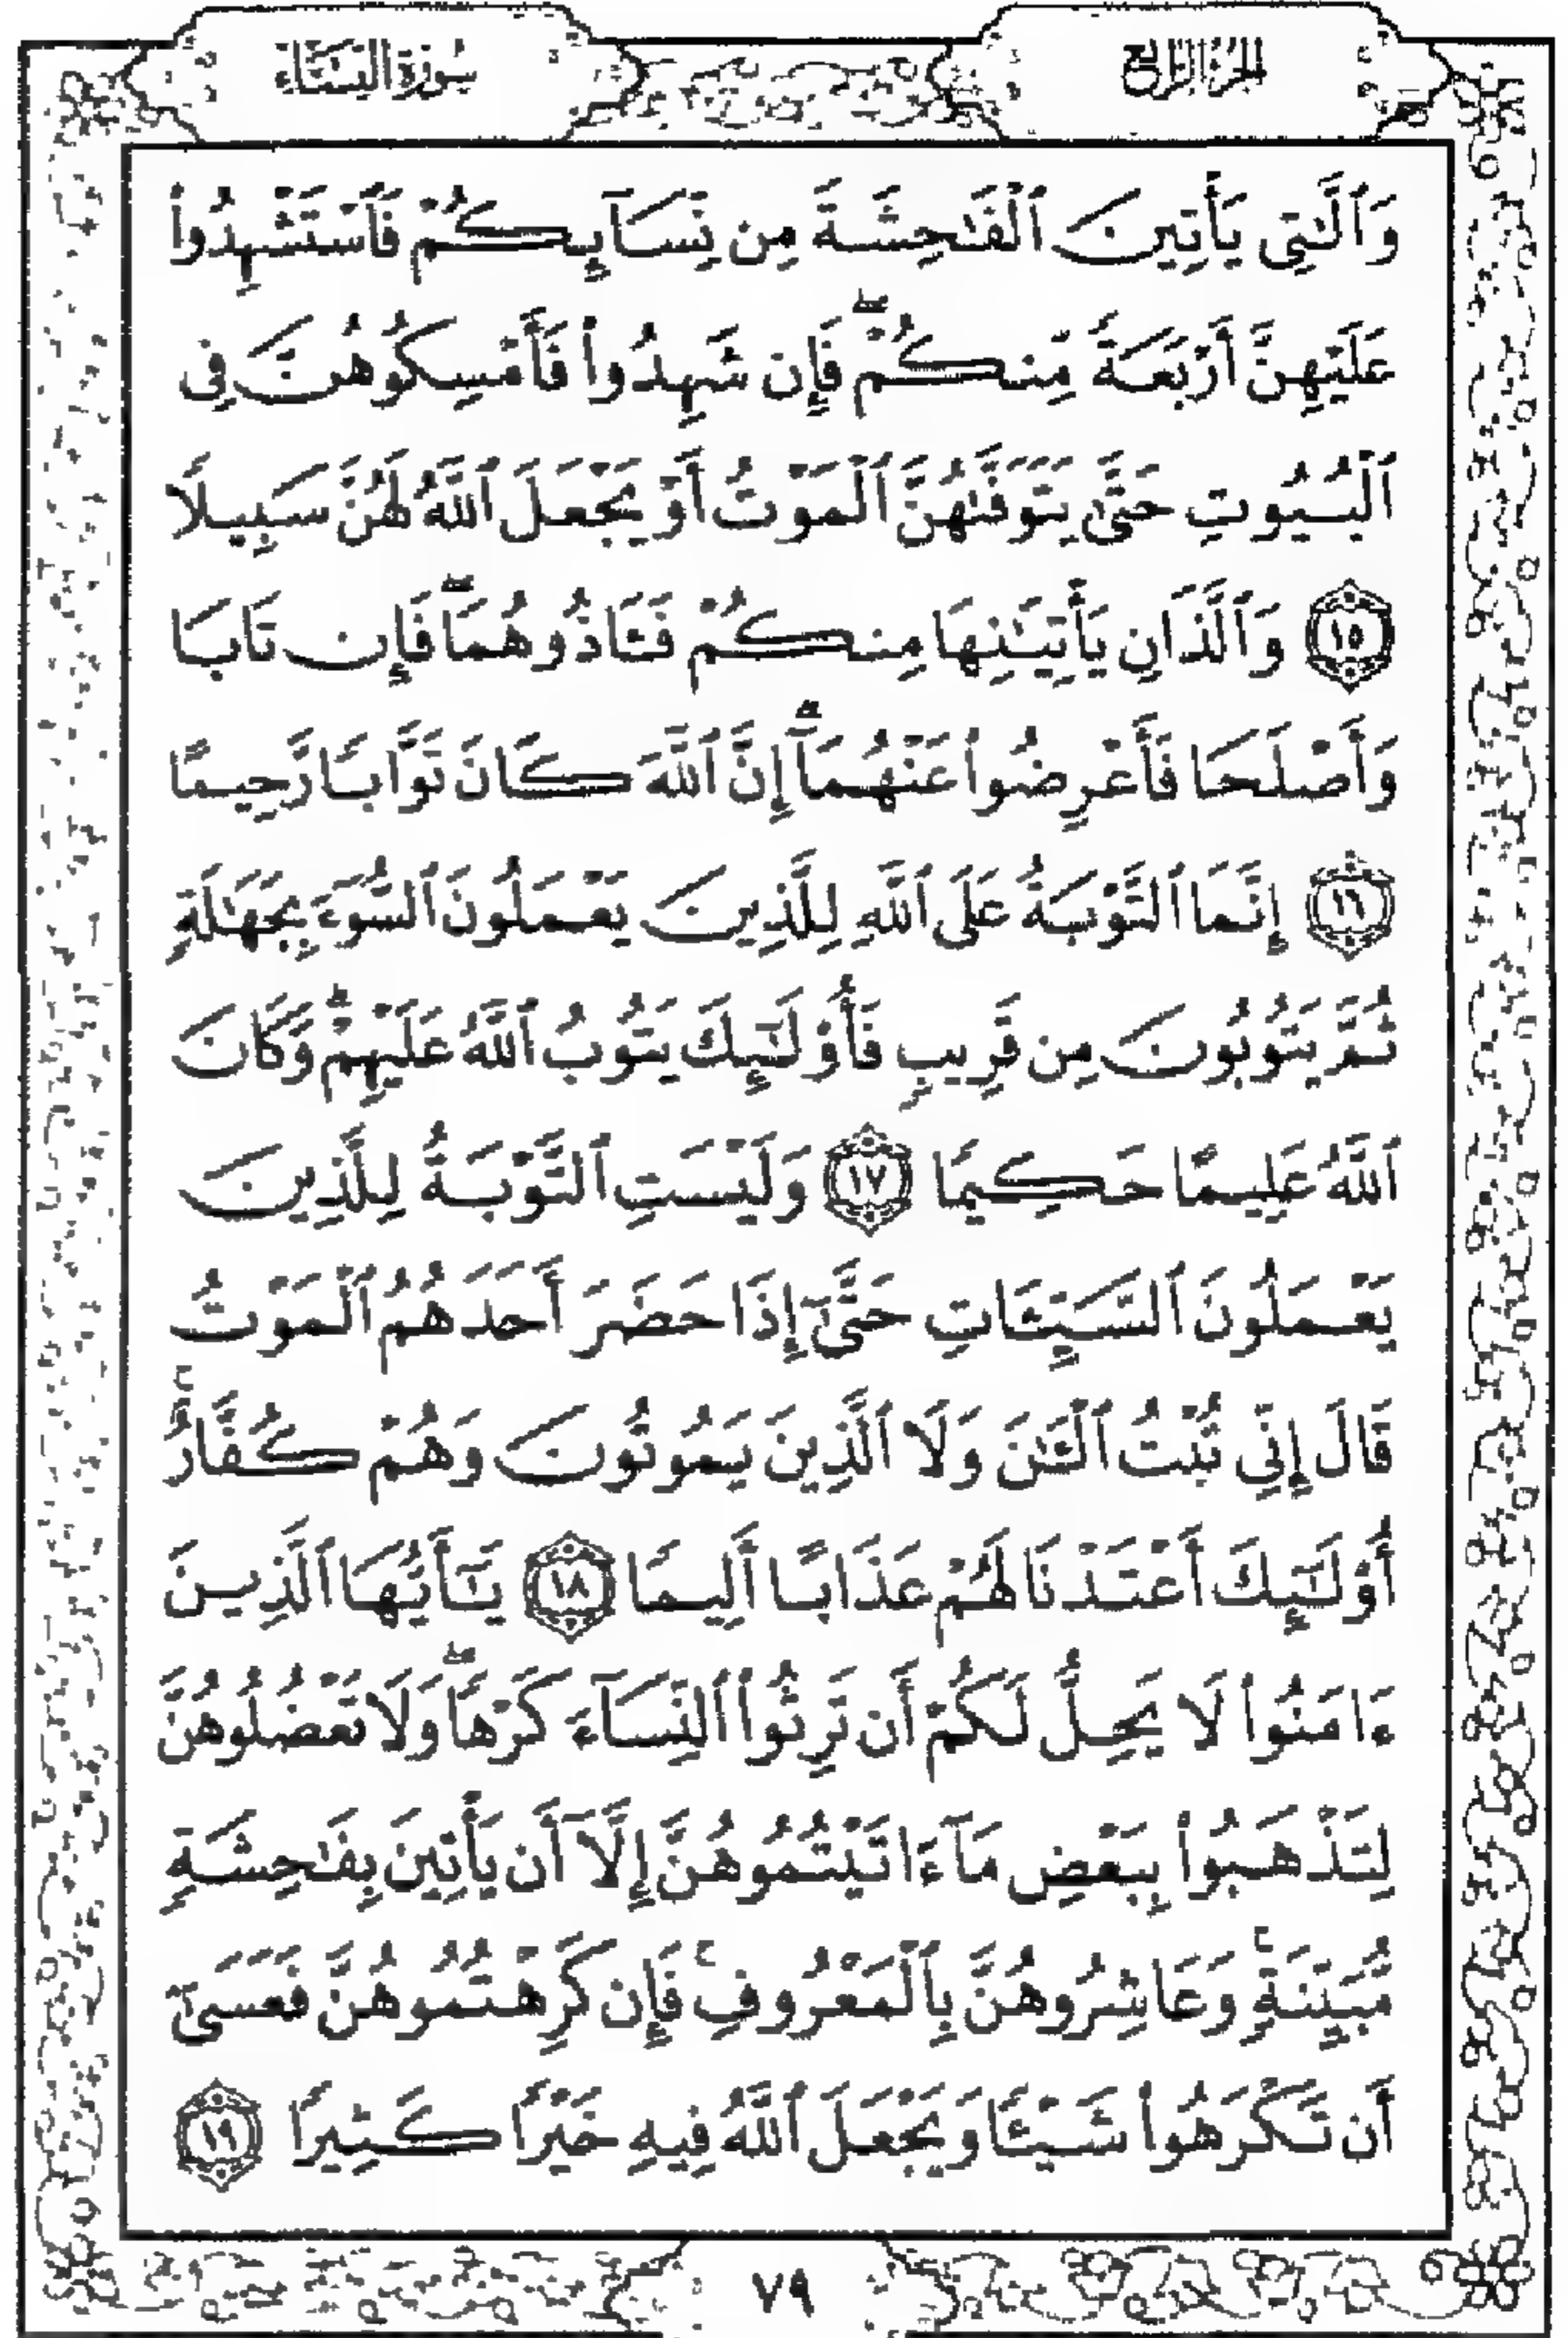 الجزء الرابع
سورة النساء
وَٱلَّٰتِى يَأْتِينَ ٱلْفَٰحِشَةَ مِن نِّسَآئِكُمْ فَٱسْتَشْهِدُوا۟
عَلَيْهِنَّ أَرْبَعَةً مِّنكُمْ ۖ فَإِن شَهِدُوا۟ فَأَمْسِكُوهُنَّ فِى
ٱلْبُيُوتِ حَتَّىٰ يَتَوَفَّىٰهُنَّ ٱلْمَوْتُ أَوْ يَجْعَلَ ٱللَّهُ لَهُنَّ سَبِيلًا
١٥ وَٱلَّذَانِ يَأْتِيَٰنِهَا مِنكُمْ فَـَٔاذُوهُمَا ۖ فَإِن تَابَا
وَأَصْلَحَا فَأَعْرِضُوا۟ عَنْهُمَآ ۗ إِنَّ ٱللَّهَ كَانَ تَوَّابًا رَّحِيمًا
١٦ إِنَّمَا ٱلتَّوْبَةُ عَلَى ٱللَّهِ لِلَّذِينَ يَعْمَلُونَ ٱلسُّوٓءَ بِجَهَٰلَةٍ
ثُمَّ يَتُوبُونَ مِن قَرِيبٍ فَأُو۟لَٰٓئِكَ يَتُوبُ ٱللَّهُ عَلَيْهِمْ ۗ وَكَانَ
ٱللَّهُ عَلِيمًا حَكِيمًا ١٧ وَلَيْسَتِ ٱلتَّوْبَةُ لِلَّذِينَ
يَعْمَلُونَ ٱلسَّيِّـَٔاتِ حَتَّىٰٓ إِذَا حَضَرَ أَحَدَهُمُ ٱلْمَوْتُ
قَالَ إِنِّى تُبْتُ ٱلْـَٰٔنَ وَلَا ٱلَّذِينَ يَمُوتُونَ وَهُمْ كُفَّارٌ ۚ
أُو۟لَٰٓئِكَ أَعْتَدْنَا لَهُمْ عَذَابًا أَلِيمًا ١٨ يَٰٓأَيُّهَا ٱلَّذِينَ
ءَامَنُوا۟ لَا يَحِلُّ لَكُمْ أَن تَرِثُوا۟ ٱلنِّسَآءَ كَرْهًا ۖ وَلَا تَعْضُلُوهُنَّ
لِتَذْهَبُوا۟ بِبَعْضِ مَآ ءَاتَيْتُمُوهُنَّ إِلَّآ أَن يَأْتِينَ بِفَٰحِشَةٍ
مُّبَيِّنَةٍ ۚ وَعَاشِرُوهُنَّ بِٱلْمَعْرُوفِ ۚ فَإِن كَرِهْتُمُوهُنَّ فَعَسَىٰٓ
أَن تَكْرَهُوا۟ شَيْـًٔا وَيَجْعَلَ ٱللَّهُ فِيهِ خَيْرًا كَثِيرًا ١٩
٧٩